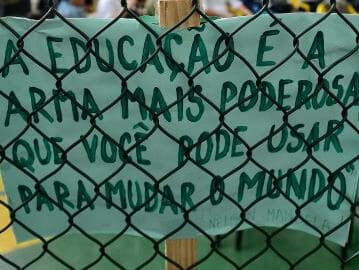 A EDUCAÇÃO E A
ARMA MAIS PODEROSA
QUE VOCÊ PODE USAR
PARA MUDAR O MUNDO"
NELSON MANDELA